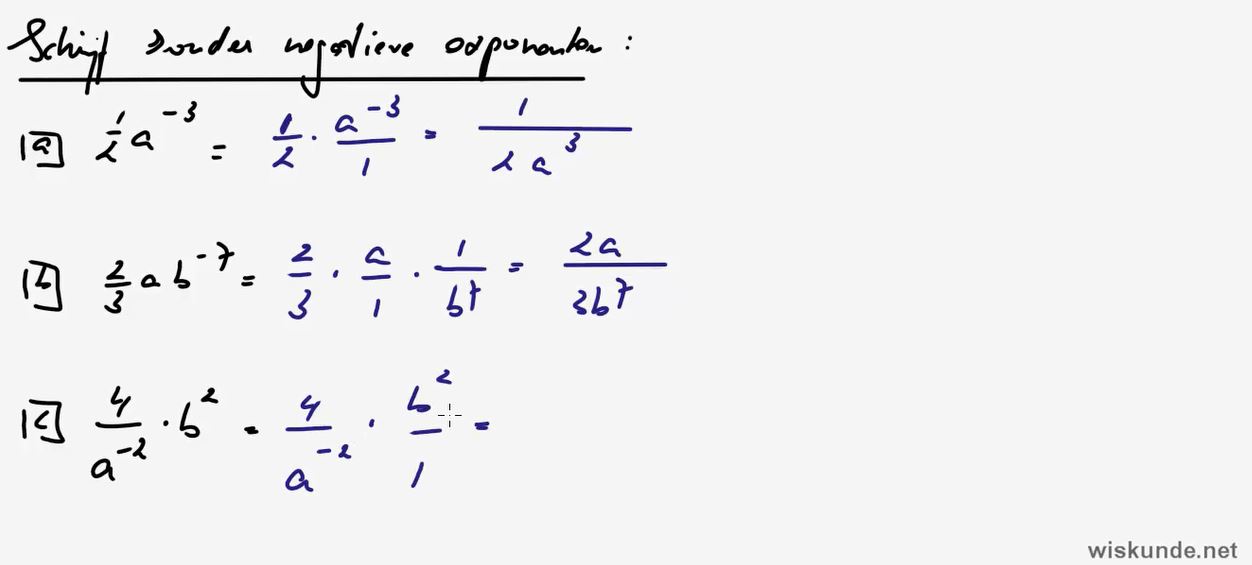 Schrijf zonder negatieve exponenten :
a ½ a⁻³ = 1/2 · a⁻³/1 = 1/(2a³)
b 2/3 a b⁻⁷ = 2/3 · a/1 · 1/b⁷ = 2a/(3b⁷)
c 4/a⁻² · b² = 4/a⁻² · b²/1 =
wiskunde.net